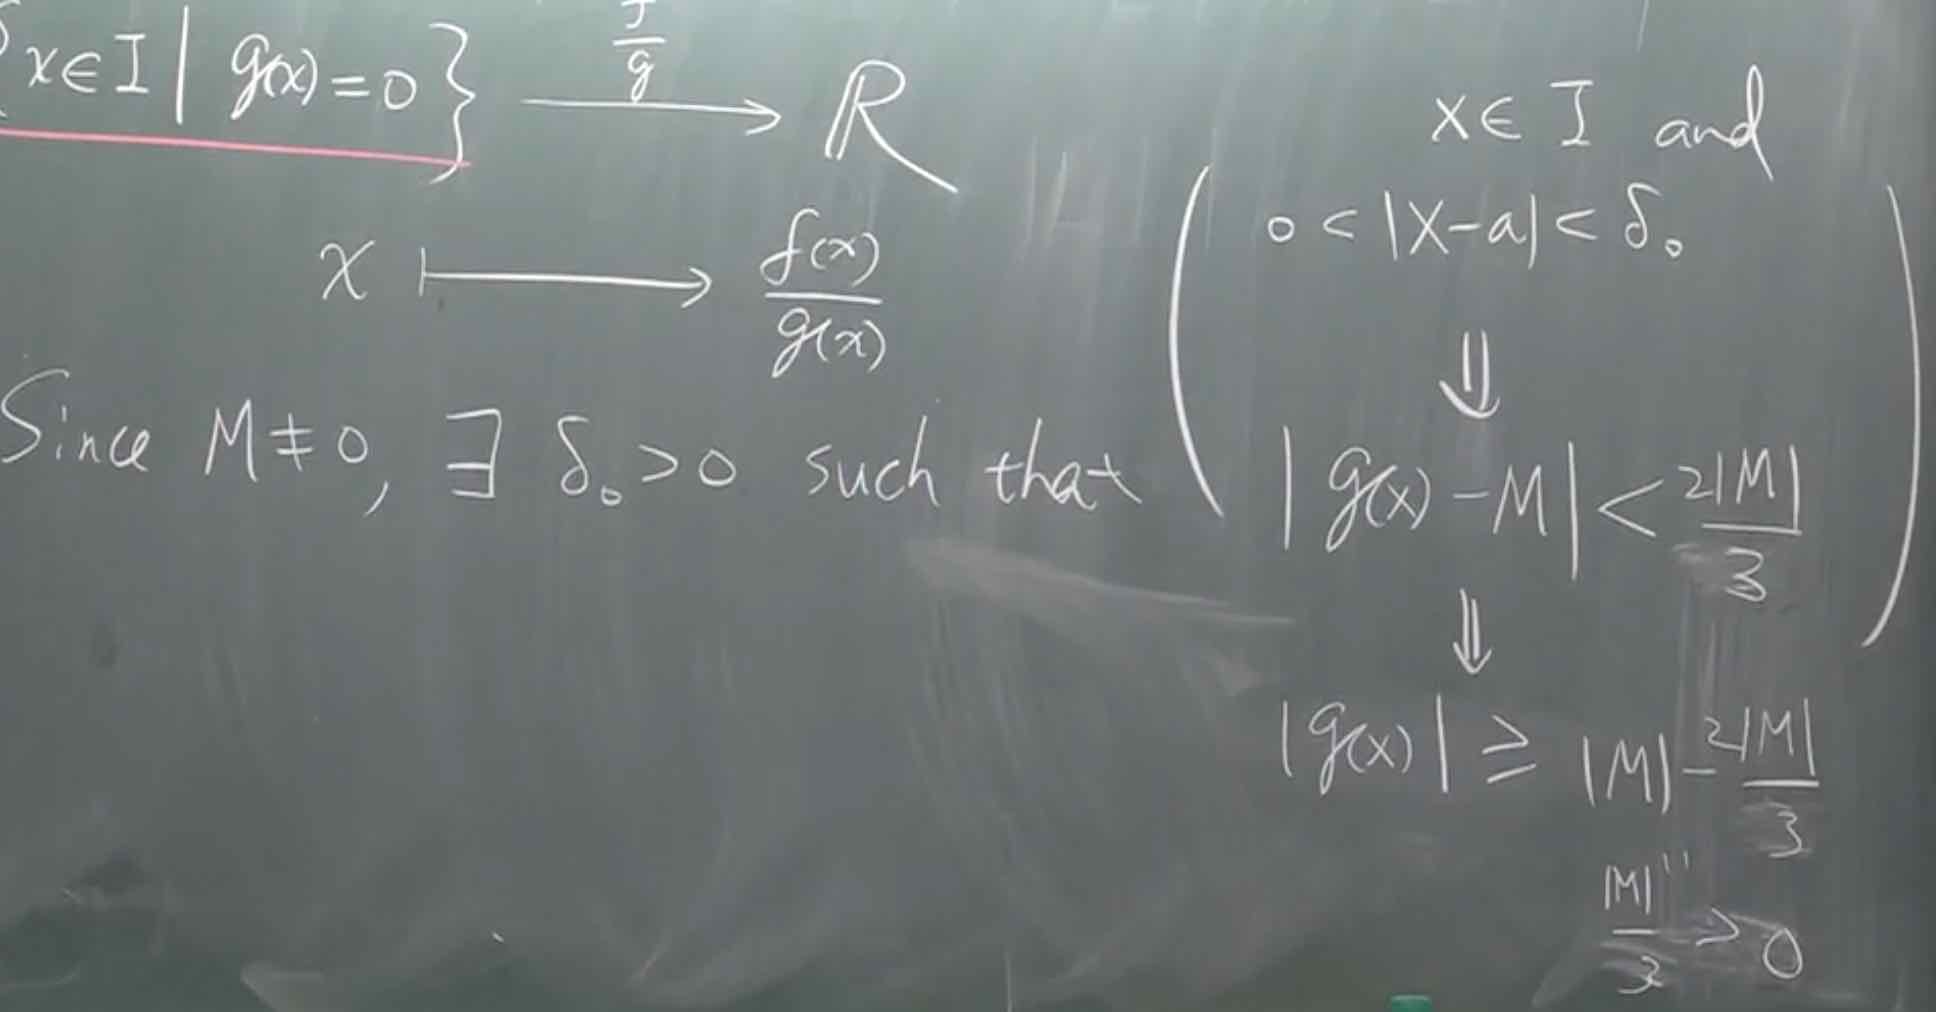 {x∈I | g(x)=0} \xrightarrow{\frac{f}{g}} R
x ⟼ \frac{f(x)}{g(x)}
Since M≠0, ∃ δ₀>0 such that
( x∈I and
0<|x-a|<δ₀
⇓
|g(x)-M| < \frac{2|M|}{3} )
⇓
|g(x)| ≥ |M| - \frac{2|M|}{3}
"
\frac{|M|}{3} > 0